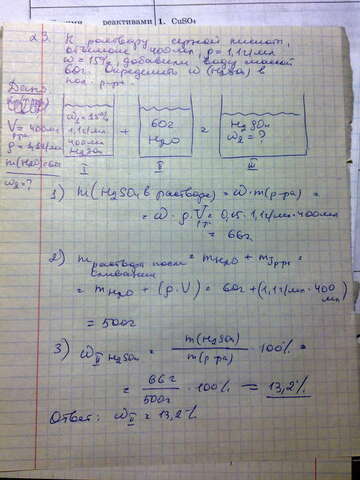 реактивами 1. CuSO₄
23. К раствору серной кислоты,
объемом 400мл, ρ=1,1г/мл
ω=15%, добавили воду массой
60г. Определить ω (H₂SO₄) в
пол. р-ре.
Дано
V= 400мл
ρ= 1,1г/мл
m(H₂O)=60г
ω₂=?
1,1г/мл
400мл
H₂SO₄
+
60г
H₂O
=
H₂SO₄
ω₂=?
I
II
III
1) m(H₂SO₄ в растворе) = ω·m(р-ра) =
= ω·ρ·V = 0,15·1,1г/мл·400мл
= 66г
2) m раствора после сливания = m H₂O + m I р-ра =
= m H₂O + (ρ·V) = 60г + (1,1г/мл·400
мл)
= 500г
3) ω II H₂SO₄ = m(H₂SO₄)/m(р-ра) · 100% =
= 66г/500г · 100% = 13,2%
Ответ: ω II = 13,2%